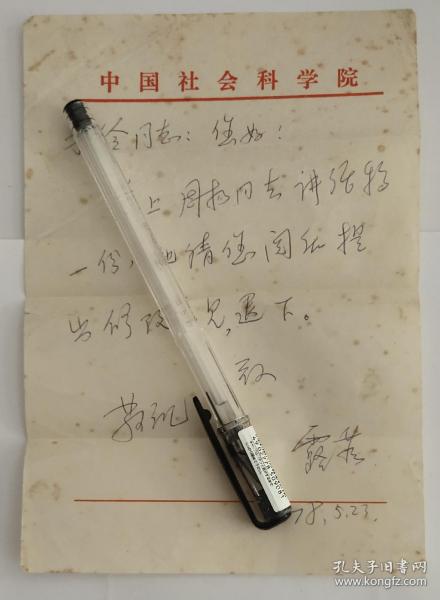 中国社会科学院
同志：您好！
上周扬同志讲话稿
一份，请您阅后提
出修改见，退下。
致
敬礼
露菲
78.5.23.
孔夫子旧书网
www.kongfz.com